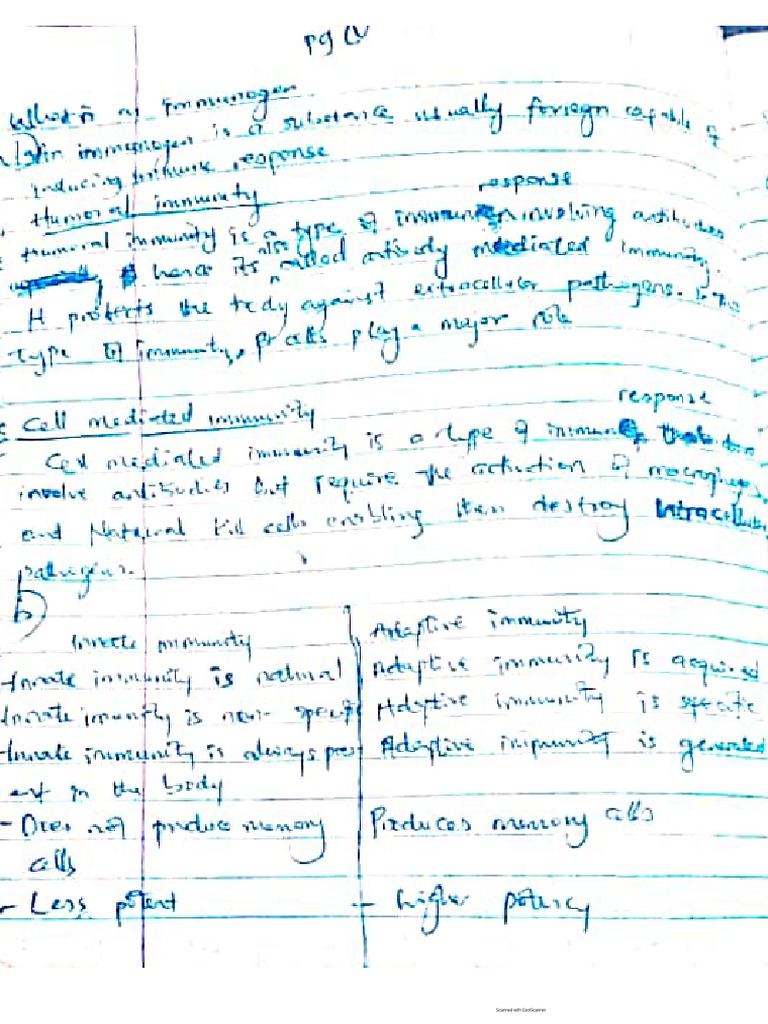 Pg (V
as immunogen
immunogen is a substance usually foreign capable of
inducing immune response
Humoral immunity
response
Humoral immunity is a type of immun involving antibodies
hence its also called antibody mediated immunity.
It protects the body against extracellular pathogens. In this
type of immunity, B cells play a major role
Cell mediated immunity
response
Cell mediated immunity is a type of immune that
involve antibodies but require the activation of macrophages
and Natural kill cells enabling them destroy Intracellular
pathogens.
b)
Innate immunity | Adaptive immunity
-Innate immunity is natural | Adaptive immunity is acquired
-Innate imunity is non-specific | Adaptive immunity is specific
-Innate immunity is always pres | Adaptive immunity is generated
ent in the body
- Does not produce memory | Produces memory cells
cells
- Less potent | - higher potency
Scanned with CamScanner